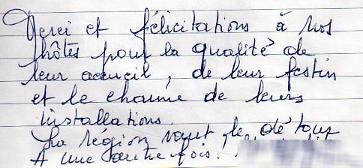 Merci et félicitations à nos
hôtes pour la qualité de
leur accueil, de leur festin
et le charme de leurs
installations.
La région vaut le détour
A une autre fois.